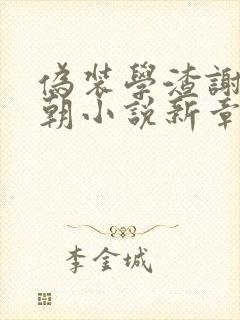 偽裝學渣謝
朝小說新章
李金城